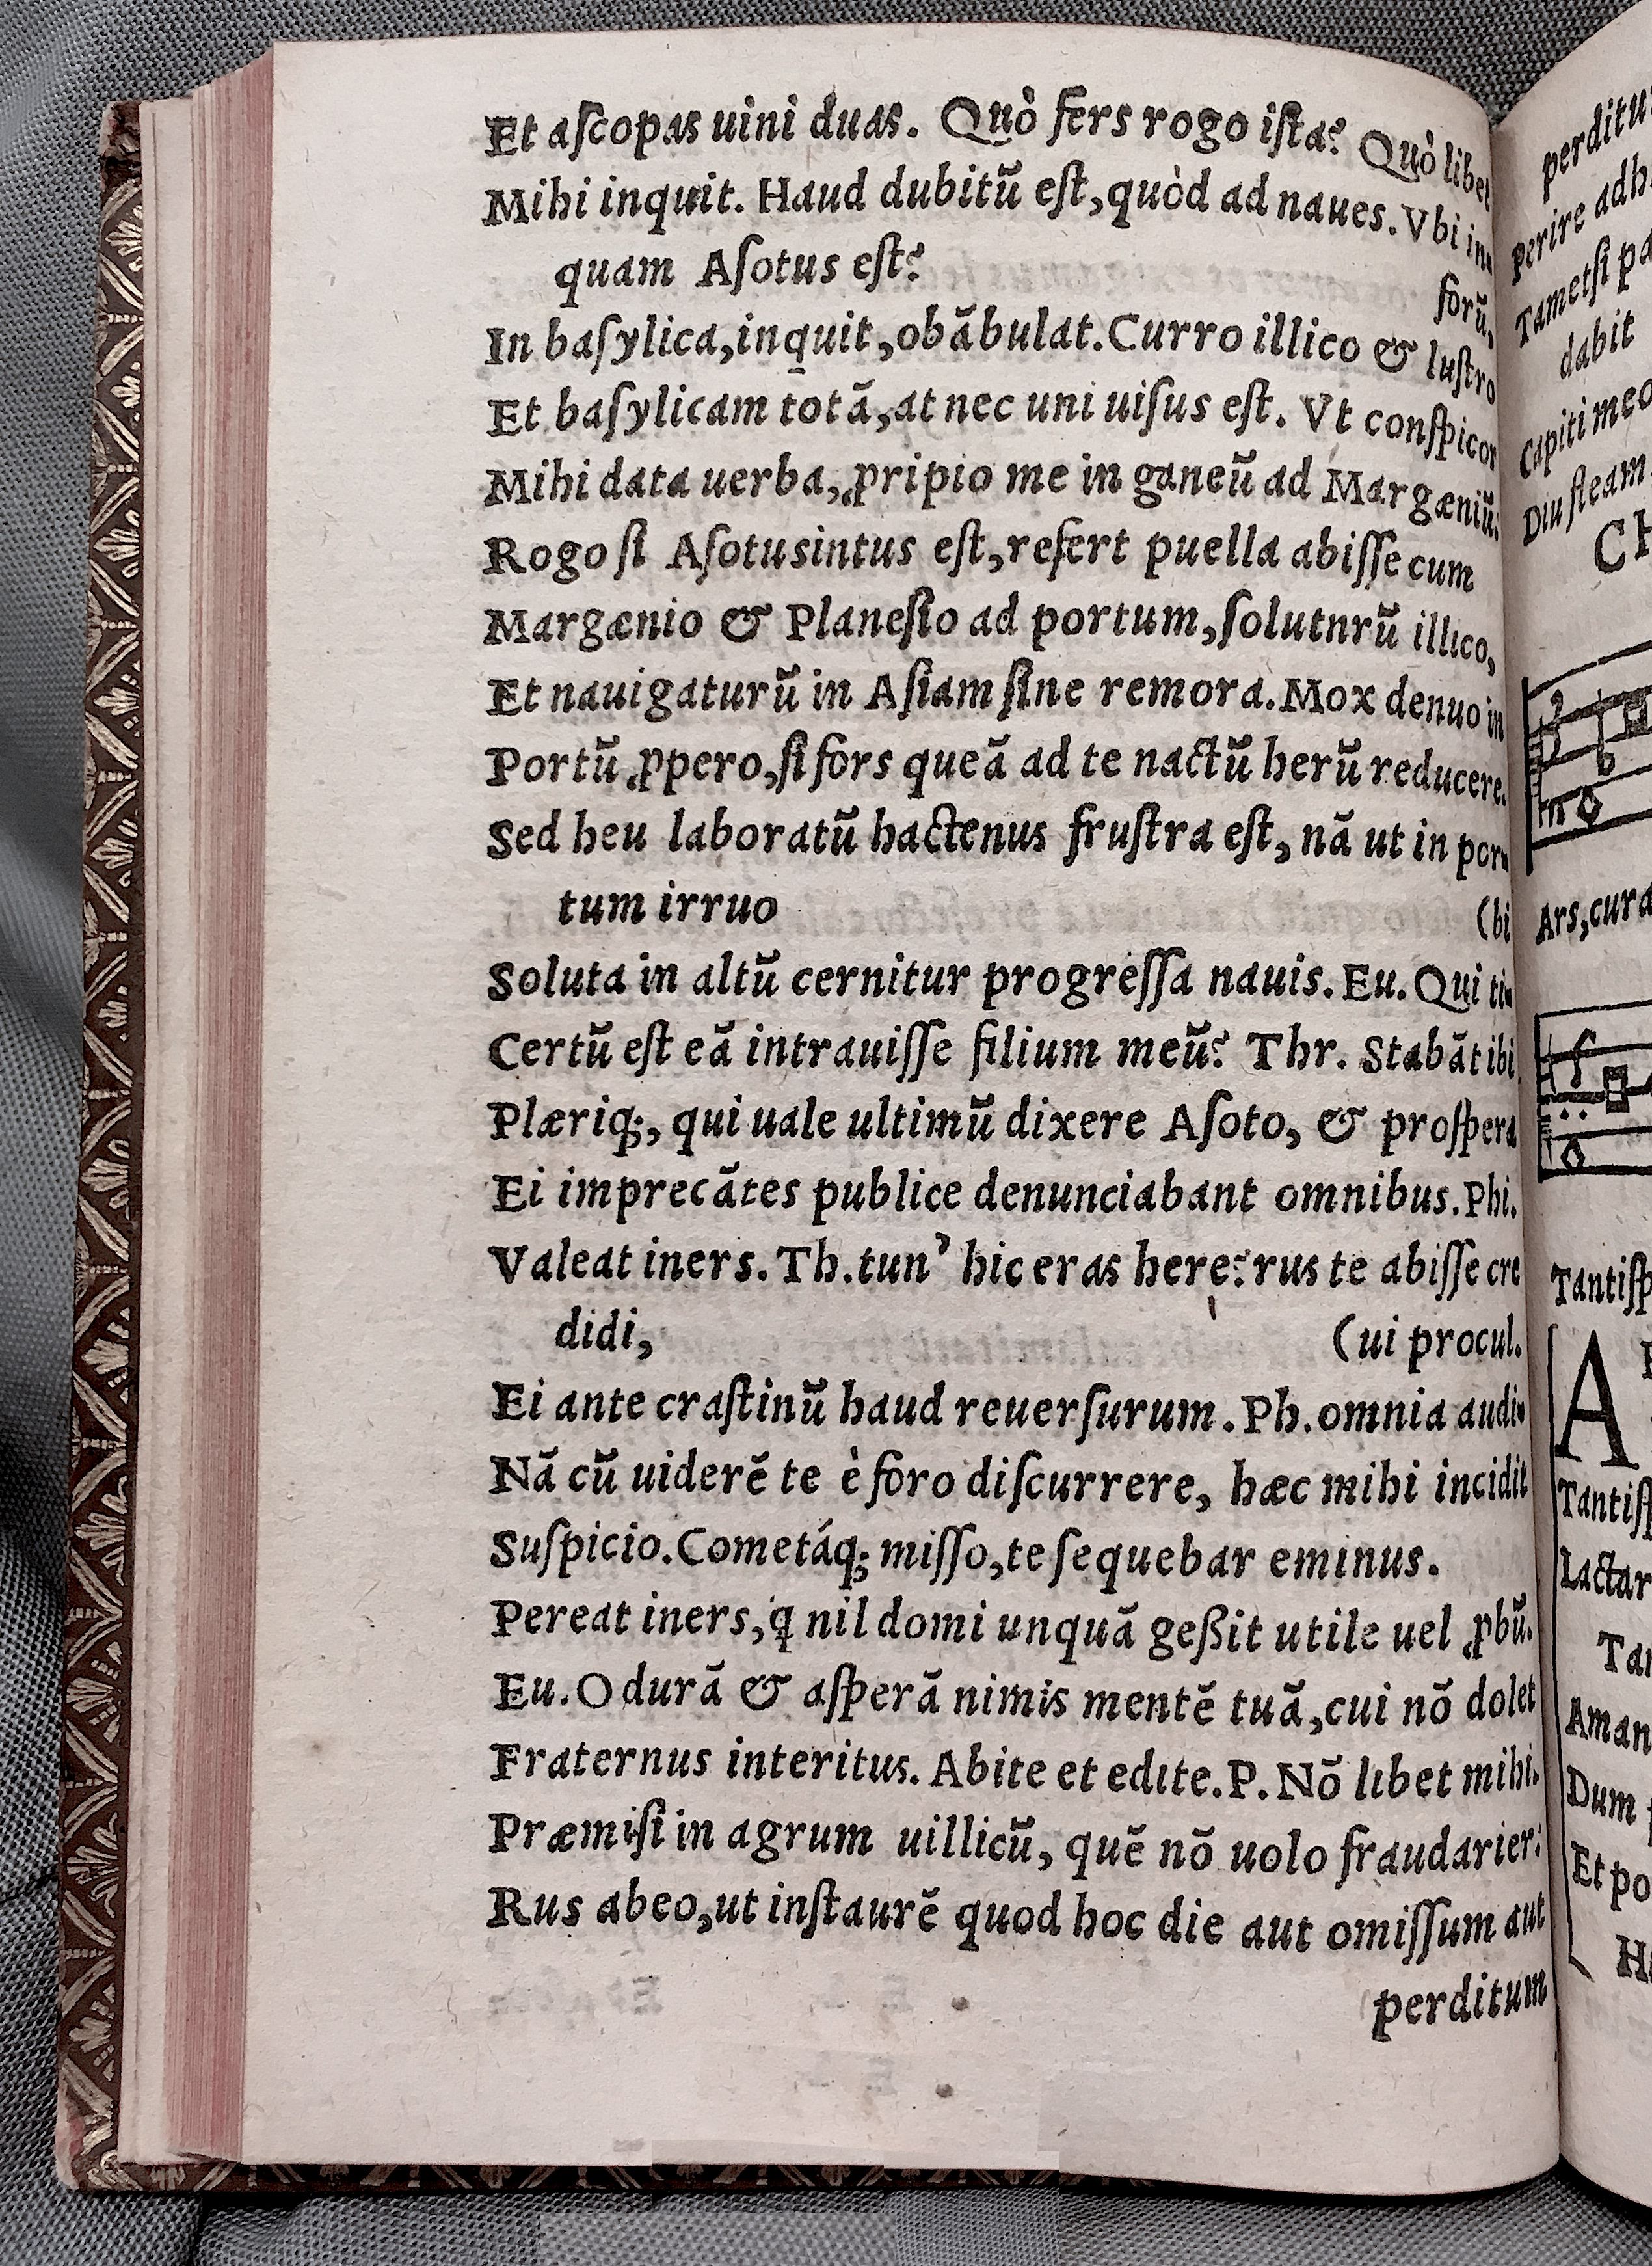 Et aſcopas uini duas. Quò fers rogo iſta? Quò libet
Mihi inquit. Haud dubitũ eſt, quòd ad naues. Vbi in-
quam Aſotus eſt? forũ,
In baſylica, inquit, obãbulat. Curro illico & luſtro
Et baſylicam totã, at nec uni uiſus eſt. Vt conſpicor
Mihi data uerba, ꝓripio me in ganeũ ad Margæniũ:
Rogo ſi Aſotusintus eſt, refert puella abiſſe cum
Margænio & Planeſio ad portum, ſolutnrũ illico,
Et nauigaturũ in Aſiam ſine remora. Mox denuo in
Portũ ꝓpero, ſi fors queã ad te nactũ herũ reducere.
Sed heu laboratũ hactenus fruſtra eſt, nã ut in por-
tum irruo (bi
Soluta in altũ cernitur progreſſa nauis. Eu. Qui ti-
Certũ eſt eã intrauiſſe filium meũ? Thr. Stabãt ibi
Plæriq;, qui uale ultimũ dixere Aſoto, & proſpera
Ei imprecãtes publice denunciabant omnibus. Phi.
Valeat iners. Th. tun’ hic eras here? rus te abiſſe cre
didi, (ui procul.
Ei ante craſtinũ haud reuerſurum. Ph. omnia audi-
Nã cũ uiderẽ te è foro diſcurrere, hæc mihi incidit
Suſpicio. Cometáq; miſſo, te ſequebar eminus.
Pereat iners, q̃ nil domi unquã geßit utile uel ꝓbũ.
Eu. O durã & aſperã nimis mentẽ tuã, cui nõ dolet
Fraternus interitus. Abite et edite. P. Nõ libet mihi.
Præmiſi in agrum uillicũ, quẽ nõ uolo fraudarier:
Rus abeo, ut inſtaurẽ quod hoc die aut omiſſum aut
perditum
perditu
Perire adh
Tametſi pa
dabit
Capiti meo
Diu fleam
CH
Ars, cura
Tantiſp
A
Tantiſ
Lactar
Tan
Aman
Dum
Et po
H